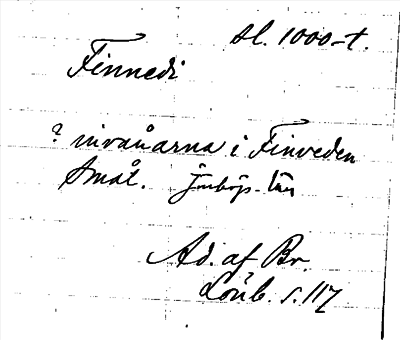 sl. 1000-t.
Finnedi
? invånarna i Finveden
Smål. Jönköp. län
Ad. af Br.
Lönb. s. 117